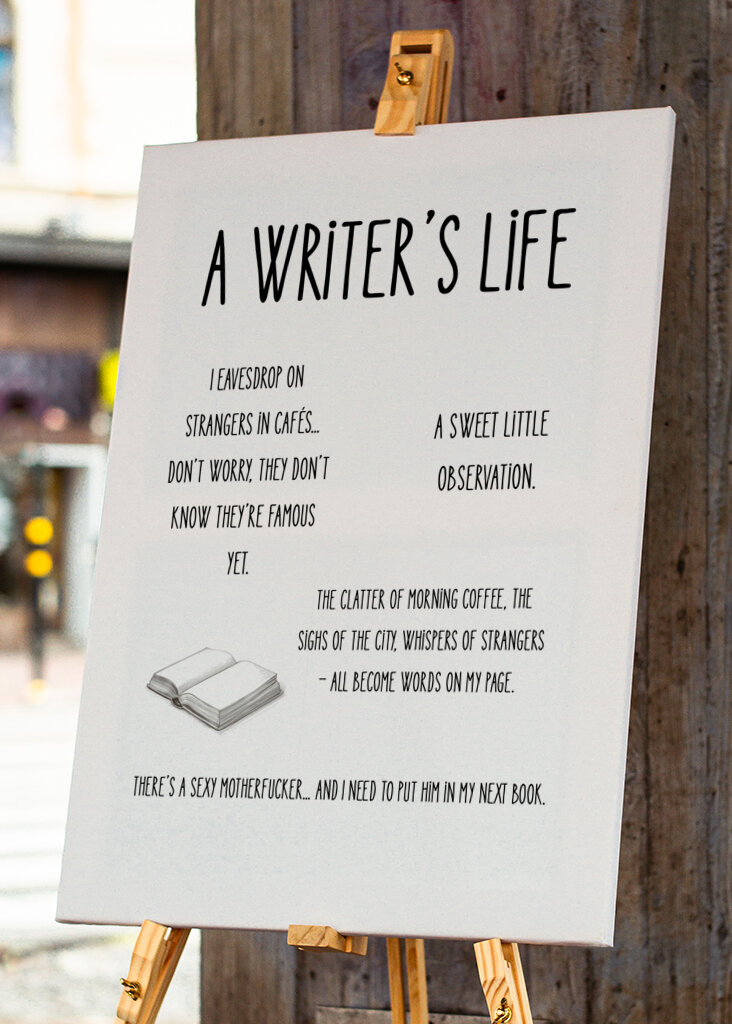 A WRITER'S LIFE
I EAVESDROP ON
STRANGERS IN CAFÉS...
DON'T WORRY, THEY DON'T
KNOW THEY'RE FAMOUS
YET.
A SWEET LITTLE
OBSERVATION.
THE CLATTER OF MORNING COFFEE, THE
SIGHS OF THE CITY, WHISPERS OF STRANGERS
– ALL BECOME WORDS ON MY PAGE.
THERE'S A SEXY MOTHERFUCKER... AND I NEED TO PUT HIM IN MY NEXT BOOK.